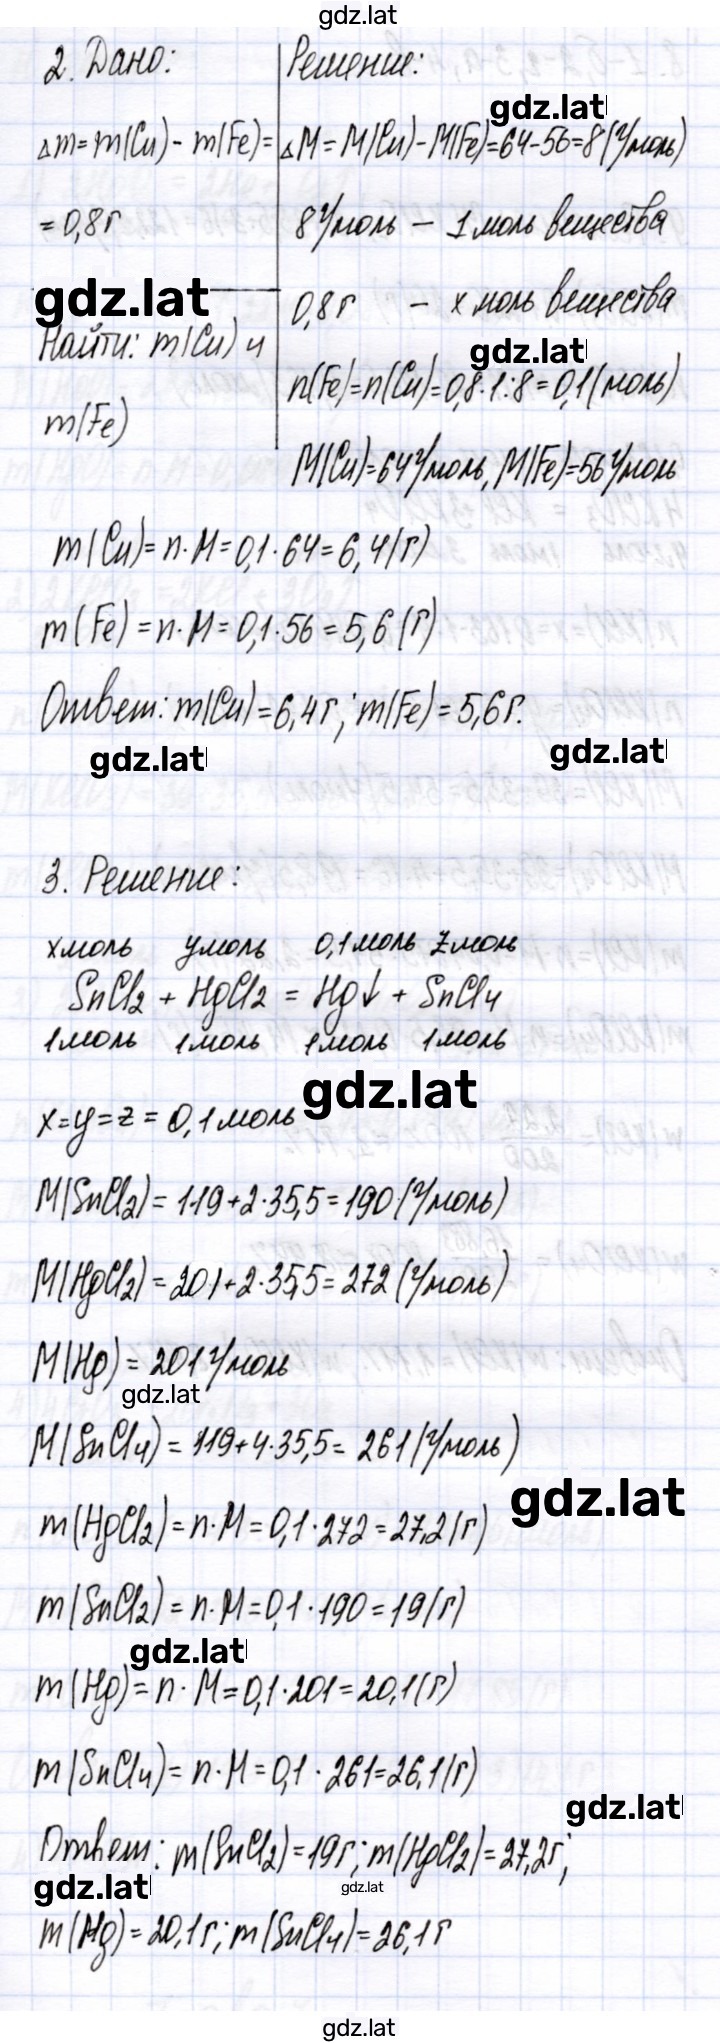 gdz.lat
2. Дано:
Решение:
gdz.lat
Δm=m(Cu)-m(Fe)=
ΔM=M(Cu)-M(Fe)=64-56=8(г/моль)
=0,8г
8г/моль – 1моль вещества
gdz.lat
0,8г – x моль вещества
Найти: m(Cu) и
gdz.lat
m(Fe)
n(Fe)=n(Cu)=0,8·1:8=0,1(моль)
M(Cu)=64г/моль, M(Fe)=56г/моль
m(Cu)=n·M=0,1·64=6,4(г)
m(Fe)=n·M=0,1·56=5,6(г)
Ответ: m(Cu)=6,4г; m(Fe)=5,6г.
gdz.lat
gdz.lat
3. Решение:
xмоль yмоль 0,1моль zмоль
SnCl2 + HgCl2 = Hg↓ + SnCl4
1моль 1моль 1моль 1моль
gdz.lat
x=y=z=0,1моль
M(SnCl2)=119+2·35,5=190(г/моль)
M(HgCl2)=201+2·35,5=272(г/моль)
M(Hg)=201г/моль
gdz.lat
M(SnCl4)=119+4·35,5=261(г/моль)
gdz.lat
m(HgCl2)=n·M=0,1·272=27,2(г)
m(SnCl2)=n·M=0,1·190=19(г)
gdz.lat
m(Hg)=n·M=0,1·201=20,1(г)
m(SnCl4)=n·M=0,1·261=26,1(г)
gdz.lat
Ответ: m(SnCl2)=19г; m(HgCl2)=27,2г;
gdz.lat
gdz.lat
m(Hg)=20,1г; m(SnCl4)=26,1г
gdz.lat